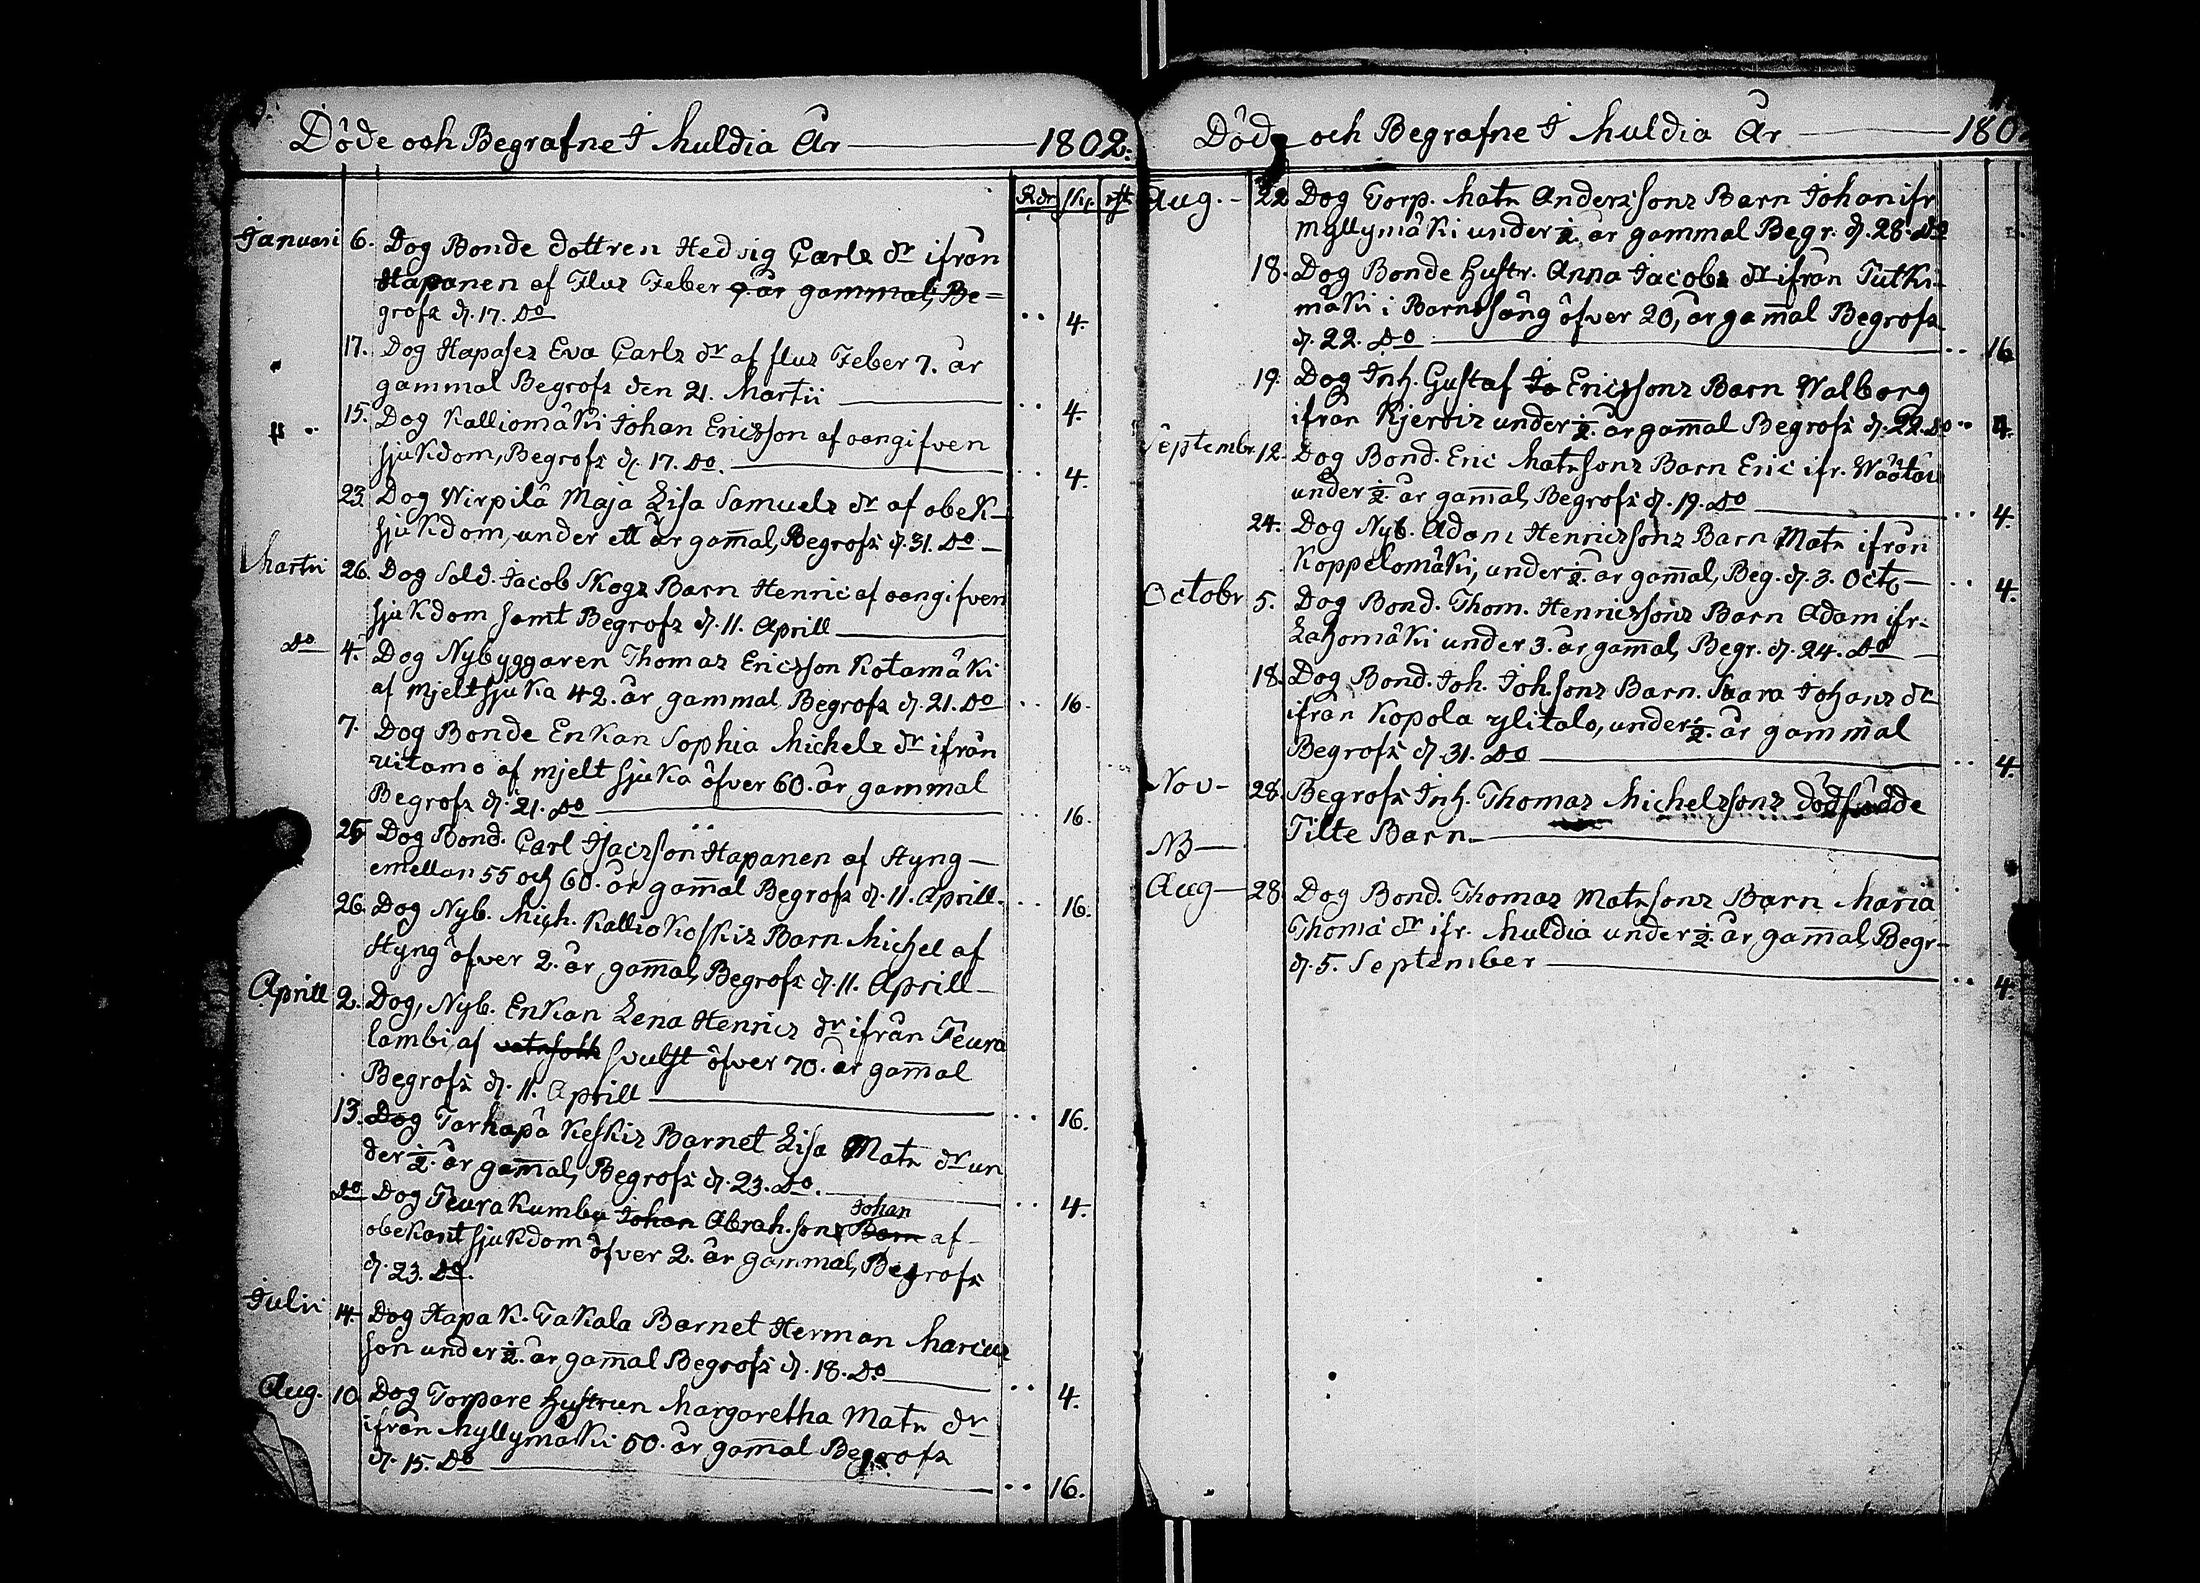 Döde och Begrafne I Muldia År 1802.
Rdr Sk. rst
Januari 6. Dog Bonde dottren Hedvig Carls dr ifrån
Hapanen af Flus Feber 9 år gammal, Be=
grofs d. 17. Do .. 4.
17. Dog Hapases Eva Carls dr af flus Feber 7. år
gammal Begrofs den 21. Martii .. 4.
15. Dog Kalliomäki Johan Ericsson af oangifven
sjukdom, Begrofs d. 17. Do. .. 4.
23. Dog Wirpilä Maja Lisa Samuels dr af obek-
sjukdom, under ett år gamal, Begrofs d. 31. Do
Martii 26. Dog Sold. Jacob Skogs Barn Henric af oangifven
sjukdom samt Begrofs d. 11. Aprill
Do 4. Dog Nybyggaren Thomas Ericsson Kotamäki
af mjeltsjuka 42. år gammal Begrofs d. 21. Do .. 16.
7. Dog Bonde Enkan Sophia Michels dr ifrån
vitamo af mjeltsjuka öfver 60. år gammal
Begrofs d. 21. Do .. 16.
25 Dog Bond. Carl Isacsson Hapanen af Styng
emellan 55 och 60. år gamal Begrofs d. 11. Aprill. .. 16.
26. Dog Nyb. Mich. Kalliokoskis Barn Michel af
Styng öfver 2. år gamal, Begrofs d. 11. Aprill
Aprill 2. Dog, Nyb. Enkan Lena Henrics dr ifrån Teura
lambi, af svulst öfver 70. år gamal
Begrofs d. 11. Aprill .. 16.
13. Dog Tarhapä Keskis Barnet Lisa Mats dr un
der ½. år gamal, Begrofs d. 23. Do. .. 4.
Do Dog Teurakumbu Johan Abrah.sons Johan Barn af
obekant sjukdom öfver 2. år gammal, Begrofs
d. 23. Do.
Julii 14. Dog Hapa K. Takala Barnet Herman Marcus
son under ½. år gamal Begrofs d. 18. Do .. 4.
Aug. 10. Dog Torpare hustrun Margaretha Mats dr
ifrån Myllymäki 50. år gamal Begrofs
d. 15. Do .. 16.
Döde och Begrafne I Muldia År 180
Aug. 22 Dog Torp. Mats Anderssons Barn Johan ifr
Myllymäki under ½ år gammal Begr. d. 28. Do
18. Dog Bonde hustr. Anna Jacobs dr ifrån Tutki-
mäki i Barnssäng öfver 20, år gamal Begrofs
d. 22. Do .. 16
19. Dog Inh. Gustaf Jo Ericssons Barn Walborg
ifrån Kjervis under ½. år gamal Begrofs d. 22. Do .. 4.
Septembr. 12. Dog Bond. Eric Matssons Barn Eric ifr.
under ½. år gamal, Begrofs d. 19. Do .. 4.
24. Dog Nyb. Adam Henricssons Barn Mats ifrån
Koppelomäki, under ½. år gamal, Beg. d. 3. Octb .. 4.
Octobr 5. Dog Bond. Thom. Henricssons Barn Adam ifr.
Lahomäki under 3. år gamal, Begr. d. 24. Do
18. Dog Bond. Joh. Joh.sons Barn. Saara Johans dr
ifrån Kopola ylitalo, under ½. år gammal
Begrofs d. 31. Do .. 4.
Nov- 28. Begrofs Inh. Thomas Michelssons dödfödde
Tilte Barn.
NB
Aug 28. Dog Bond. Thomas Matssons Barn Maria
Thoma dr ifr. Muldia under ½. år, gamal, Begr-
d. 5. September .. 4.